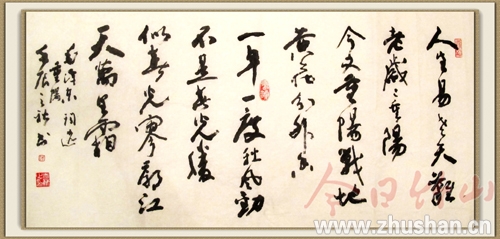 人生易老天難
老歲々重陽
今又重陽戰地
黄花分外香
一年一度秋风勁
不是春光勝
似春光寥廓江
天萬里霜
毛澤东词选
重陽
壬辰之秋书
今日竹山
www.zhushan.cn